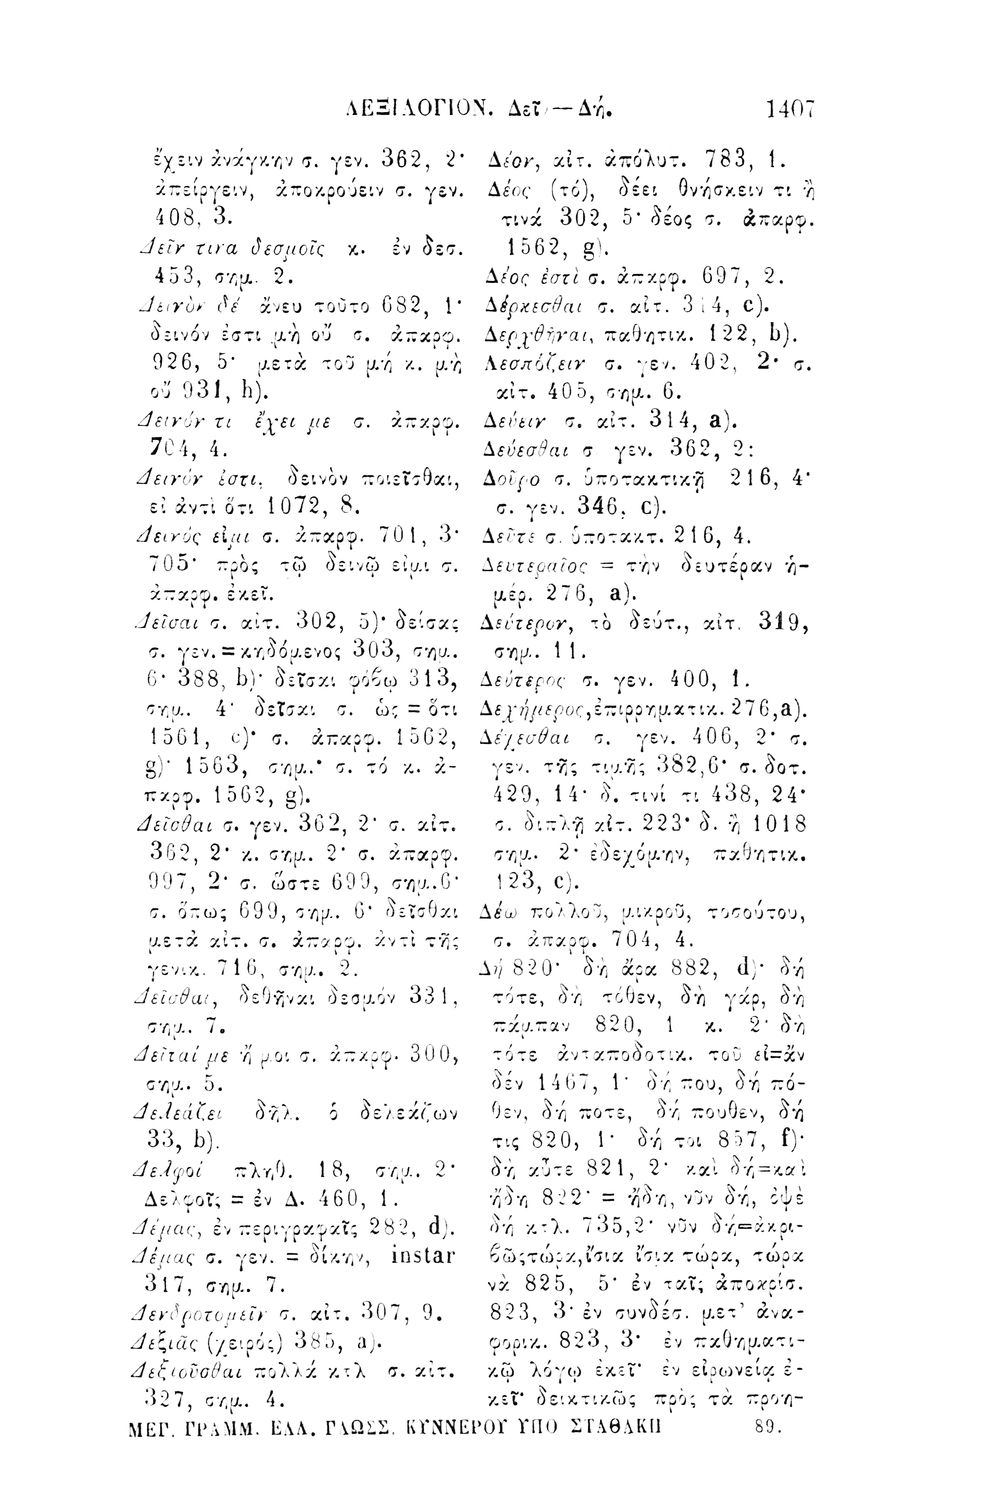 ΛΕΞΙΛΟΓΙΟΝ. Δεῖ — Δή. 1407
ἔχειν ἀνάγκην σ. γεν. 362, 2·
ἀπείργειν, ἀποκρούειν σ. γεν.
408, 3.
Δεῖν τινα δεσμοῖς κ. ἐν δεσ.
453, σημ. 2.
Δεινὸν δέ ἄνευ τοῦτο 682, 1·
δεινόν ἐστι μὴ οὔ σ. ἀπαρφ.
926, 5· μετὰ τοῦ μή κ. μὴ
οὔ 931, h).
Δεινόν τι ἔχει με σ. ἀπαρφ.
704, 4.
Δεινόν ἐστι, δεινὸν ποιεῖσθαι,
εἰ ἀντὶ ὅτι 1072, 8.
Δεινός εἰμι σ. ἀπαρφ. 701, 3·
705· πρὸς τῷ δεινῷ εἰμι σ.
ἀπαρφ. ἐκεῖ.
Δεῖσαι σ. αἰτ. 302, 5)· δείσας
σ. γεν. = κηδόμενος 303, σημ.
6· 388, b)· δεῖσαι φόβῳ 313,
σημ. 4· δεῖσαι σ. ὡς = ὅτι
1561, c)· σ. ἀπαρφ. 1562,
g)· 1563, σημ.· σ. τό κ. ἀ-
παρφ. 1562, g).
Δεῖσθαι σ. γεν. 362, 2· σ. αἰτ.
362, 2· κ. σημ. 2· σ. ἀπαρφ.
997, 2· σ. ὥστε 699, σημ. 6·
σ. ὅπως 699, σημ. 6· δεῖσθαι
μετὰ αἰτ. σ. ἀπαρφ. ἀντὶ τῆς
γενικ. 716, σημ. 2.
Δεῖσθαι, δεθῆναι δεσμόν 331,
σημ. 7.
Δεῖταί με ἤ μοι σ. ἀπαρφ. 300,
σημ. 5.
Δελεάζει δηλ. ὁ δελεάζων
33, b).
Δελφοί πληθ. 18, σημ. 2·
Δελφοῖς = ἐν Δ. 460, 1.
Δέμας, ἐν περιγραφαῖς 282, d).
Δέμας σ. γεν. = δίκην, instar
317, σημ. 7.
Δενδροτομεῖν σ. αἰτ. 307, 9.
Δεξιᾶς (χειρός) 385, a).
Δεξιοῦσθαι πολλά κτλ σ. αἰτ.
327, σημ. 4.
Δέον, αἰτ. ἀπόλυτ. 783, 1.
Δέος (τό), δέει θνήσκειν τι ἤ
τινά 302, 5· δέος σ. ἀπαρφ.
1562, g).
Δέος ἐστὶ σ. ἀπαρφ. 697, 2.
Δέρκεσθαι σ. αἰτ. 314, c).
Δερχθῆναι, παθητικ. 122, b).
Δεσπόζειν σ. γεν. 402, 2· σ.
αἰτ. 405, σημ. 6.
Δεύειν σ. αἰτ. 314, a).
Δεύεσθαι σ γεν. 362, 2:
Δοῦρο σ. ὑποτακτικῇ 216, 4·
σ. γεν. 346, c).
Δεῦτε σ. ὑποτακτ. 216, 4.
Δευτεραῖος = τὴν δευτέραν ἡ-
μέρ. 276, a).
Δεύτερον, τὸ δεύτ., αἰτ. 319,
σημ. 11.
Δεύτερος σ. γεν. 400, 1.
Δεχήμερος, ἐπιρρηματικ. 276, a).
Δέχεσθαι σ. γεν. 406, 2· σ.
γεν. τῆς τιμῆς 382, 6· σ. δοτ.
429, 14· δ. τινί τι 438, 24·
σ. διπλῇ αἰτ. 223· δ. ἤ 1018
σημ. 2· ἐδεχόμην, παθητικ.
123, c).
Δέω πολλοῦ, μικροῦ, τοσούτου,
σ. ἀπαρφ. 704, 4.
Δή 820· δὴ ἄρα 882, d)· δή
τότε, δὴ τόθεν, δὴ γάρ, δὴ
πάμπαν 820, 1 κ. 2· δὴ
τότε ἀνταποδοτικ. τοῦ εἰ=ἄν
δέν 1467, 1· δή που, δή πό-
θεν, δή ποτε, δή πουθεν, δή
τις 820, 1· δή τοι 857, f)·
δὴ αὖτε 821, 2· καὶ δή=καὶ
ἤδη 822· = ἤδη, νῦν δή, ὀψὲ
δή κτλ. 735, 2· νῦν δή=ἀκρι-
βῶς τώρα, ἴσια ἴσια τώρα, τώρα
νὰ 825, 5· ἐν ταῖς ἀποκρίσ.
823, 3· ἐν συνδέσ. μετ' ἀνα-
φορικ. 823, 3· ἐν παθηματι-
κῷ λόγῳ ἐκεῖ· ἐν εἰρωνείᾳ ἐ-
κεῖ· δεικτικῶς πρὸς τὰ προη-
ΜΕΓ. ΓΡΑΜΜ. ΕΛΛ. ΓΛΩΣΣ. ΚΥΝΝΕΡΟΥ ΥΠΟ ΣΤΑΘΑΚΗ 89.